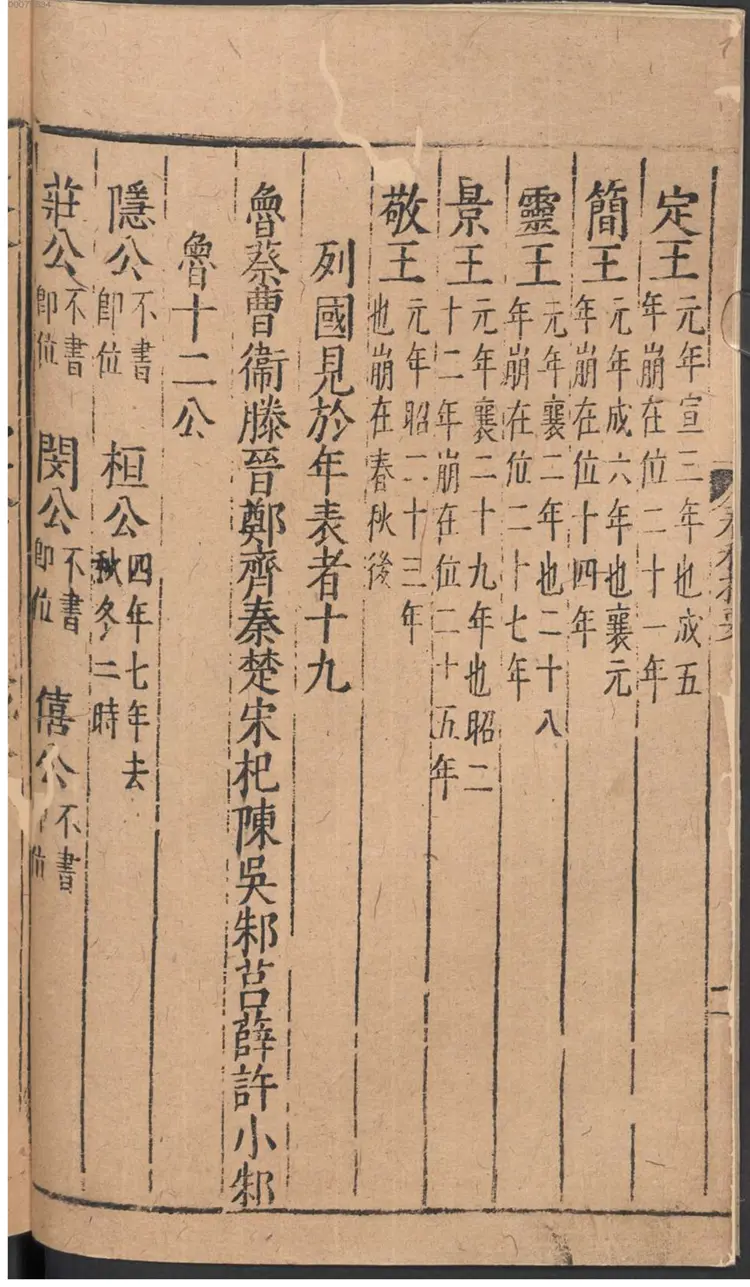 定王元年宣三年也成五年崩在位二十一年
簡王元年成六年也襄元年崩在位十四年
靈王元年襄二年也二十八年崩在位二十七年
景王元年襄二十九年也昭二十二年崩在位二十五年
敬王元年昭二十三年也崩在春秋後
列國見於年表者十九
魯蔡曹衞滕晉鄭齊秦楚宋杞陳吳邾莒薛許小邾
魯十二公
隱公不書即位 桓公四年七年去秋冬二時
莊公不書即位 閔公不書即位 僖公不書即位
二